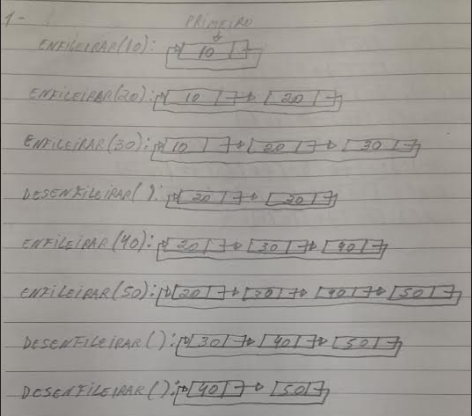 1-
PRIMEIRO
ENFILEIRAR(10): 10
ENFILEIRAR(20): 10 20
ENFILEIRAR(30): 10 20 30
DESENFILEIRAR( ): 20 30
ENFILEIRAR(40): 20 30 40
ENFILEIRAR(50): 20 30 40 50
DESENFILEIRAR( ): 30 40 50
DESENFILEIRAR( ): 40 50